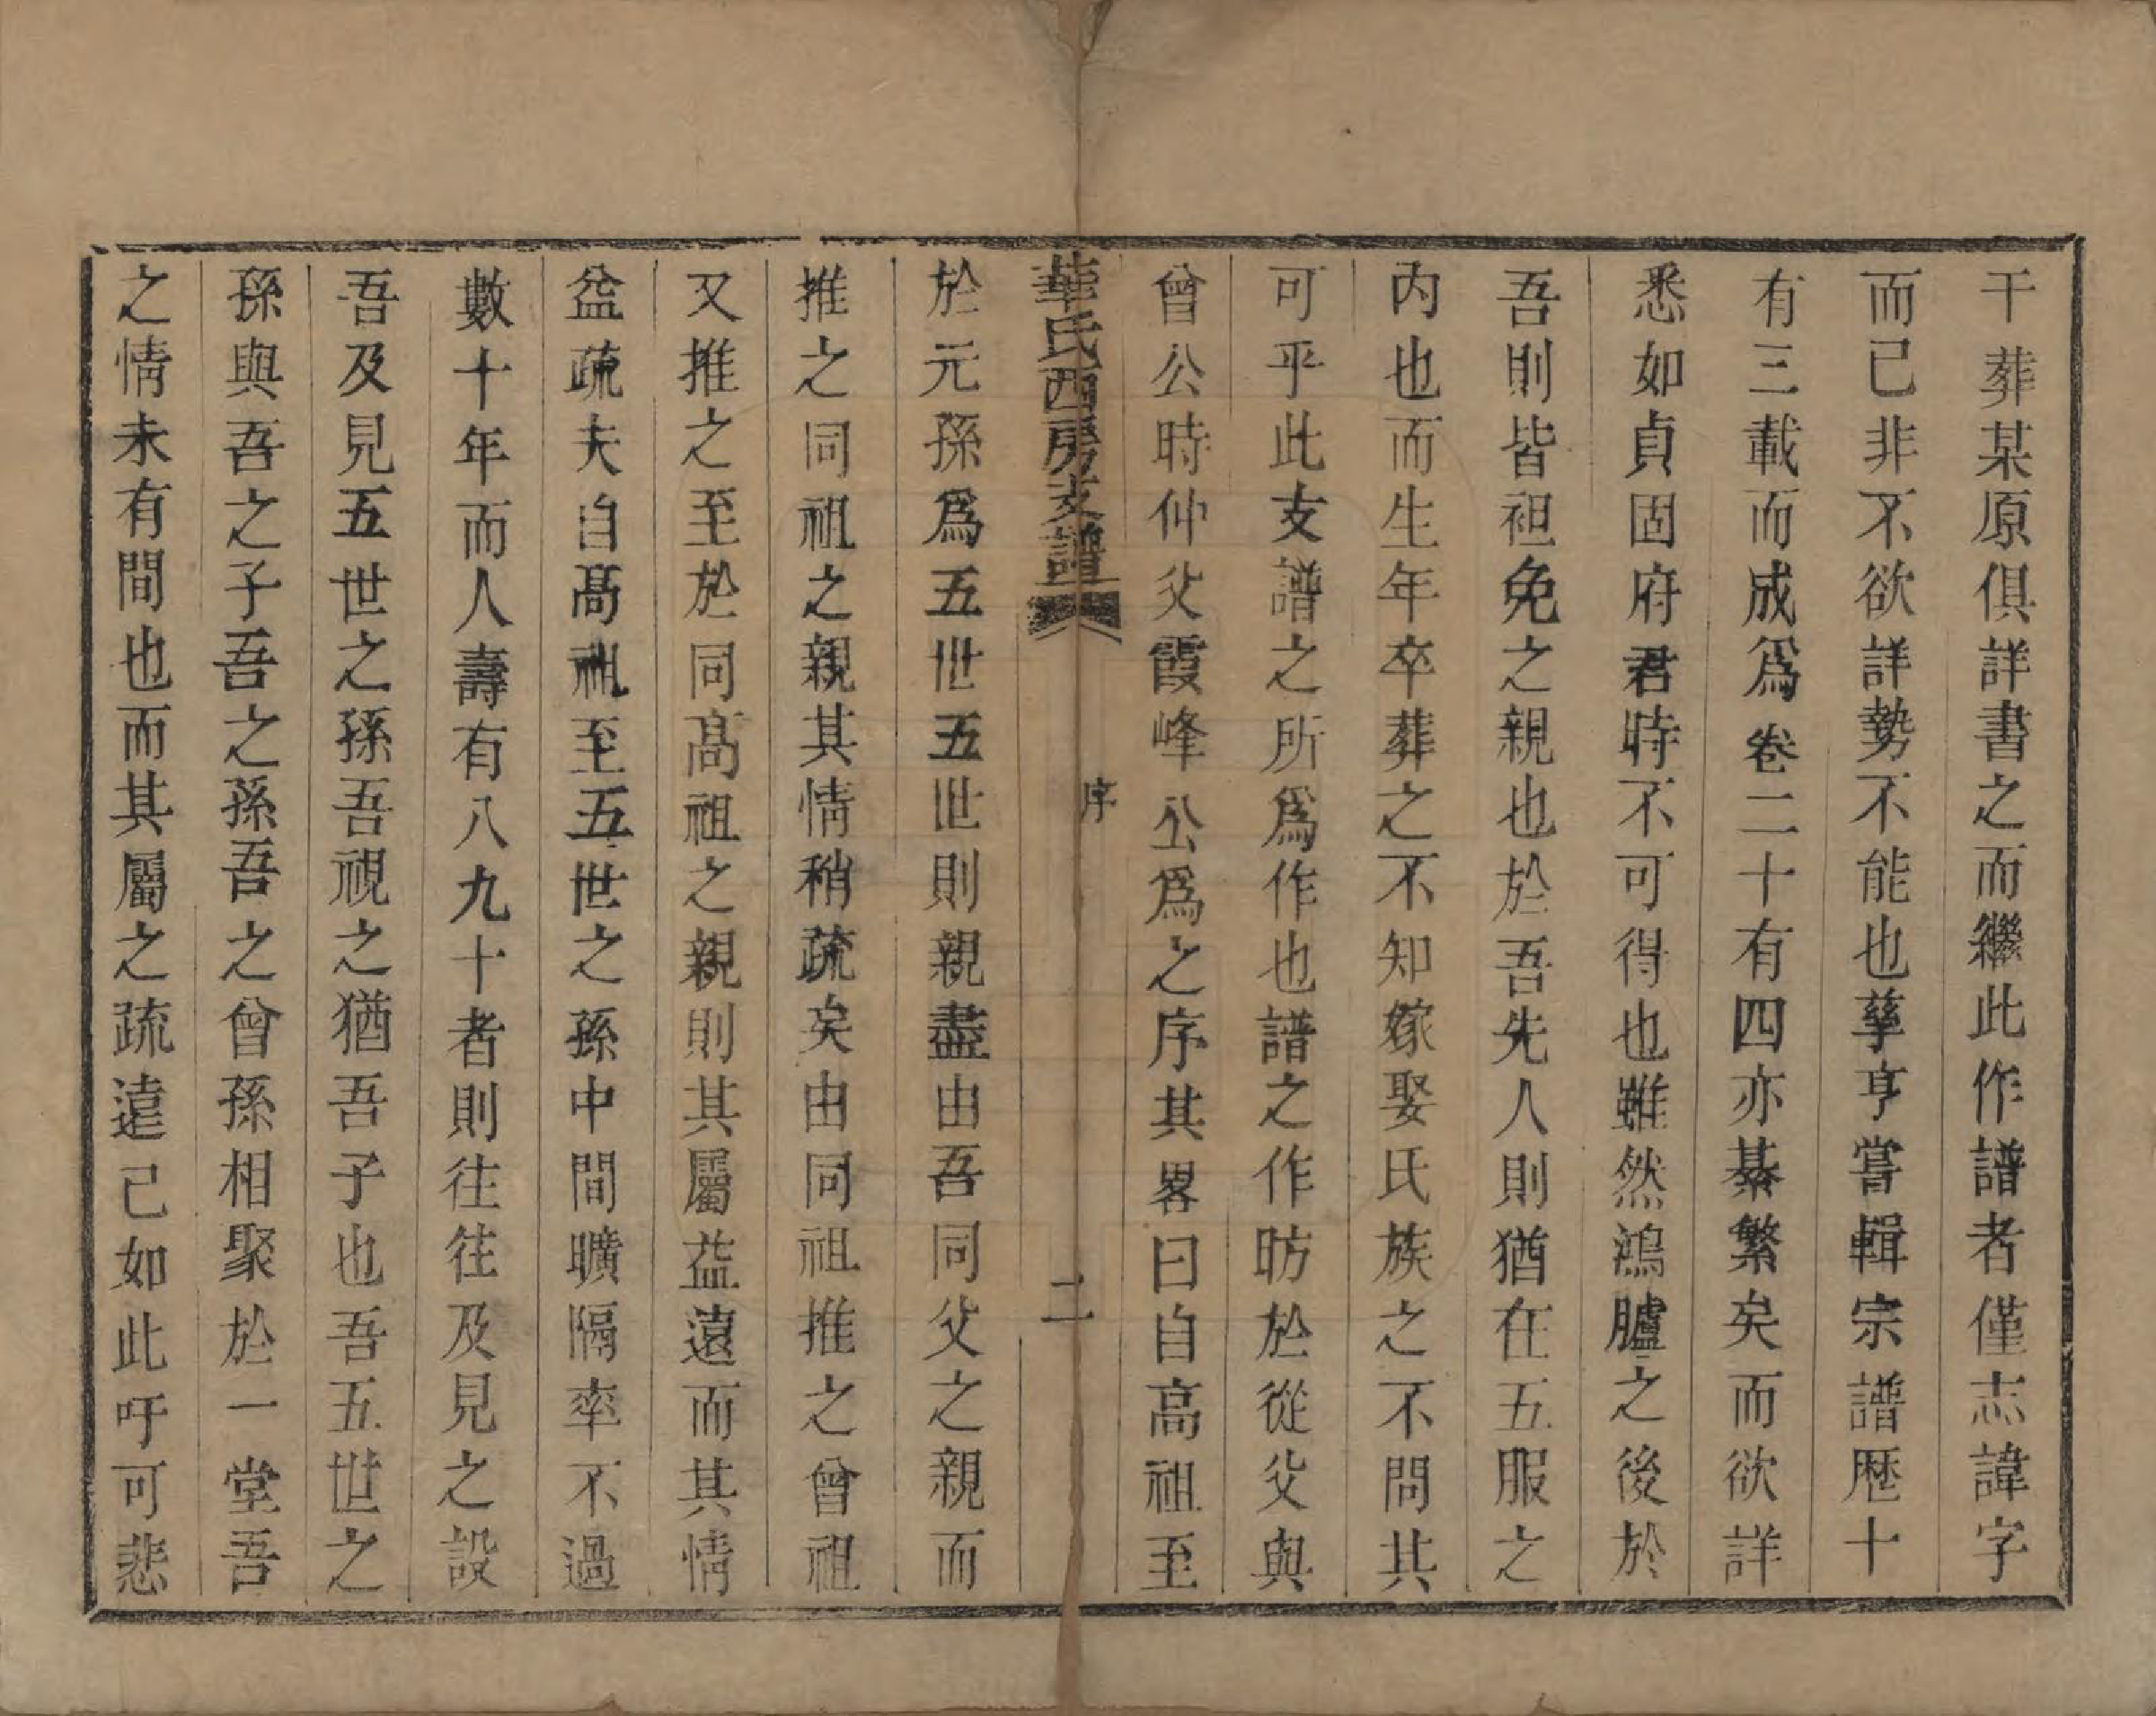 干葬某原俱詳書之而繼此作譜者僅志諱字
而已非不欲詳勢不能也孳亨嘗輯宗譜歷十
有三載而成爲卷二十有四亦綦繁矣而欲詳
悉如貞固府君時不可得也雖然鴻臚之後於
吾則皆袒免之親也於吾先人則猶在五服之
内也而生年卒葬之不知嫁娶氏族之不問其
可乎此支譜之所爲作也譜之作昉於從父與
曾公時仲父霞峰公爲之序其畧曰自高祖至
華氏西房支譜 序 二
於元孫爲五世五世則親盡由吾同父之親而
推之同祖之親其情稍疏矣由同祖推之曾祖
又推之至於同髙祖之親則其屬益遠而其情
益疏夫自髙祖至五世之孫中間曠隔率不過
數十年而人壽有八九十者則往往及見之設
吾及見五世之孫吾視之猶吾子也吾五世之
孫與吾之子吾之孫吾之曾孫相聚於一堂吾
之情未有間也而其屬之疏遠已如此吁可悲